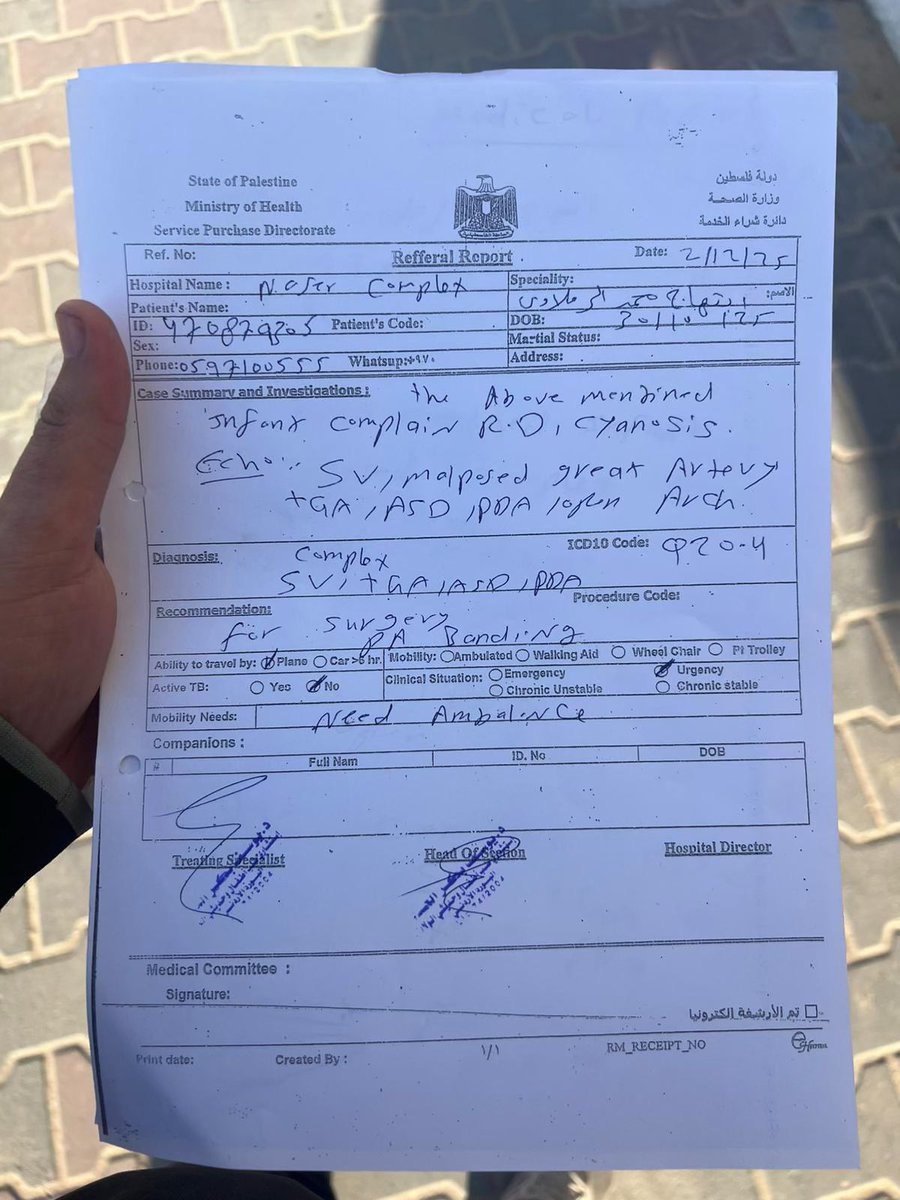 State of Palestine
Ministry of Health
Service Purchase Directorate
دولة فلسطين
وزارة الصحة
دائرة شراء الخدمة
Ref. No:
Refferal Report
Date: 2/12/25
Hospital Name: Naser Complex
Speciality:
Patient's Name:
الاسم: ابتهاج محمد
ID: 470879205 Patient's Code:
DOB: 30/10/25
Sex:
Martial Status:
Phone: 0597100555 Whatsup: +٩٧٠
Address:
Case Summary and Investigations: the Above mentined
infant complain R.D, cyanosis.
Echo: SV, malposed great Artery
TGA, ASD, PDA, open Arch.
Diagnosis: Complex
ICD10 Code: Q20-4
SV, TGA, ASD, PDA
Procedure Code:
Recommendation:
for surgery
PA Banding
Ability to travel by: Plane Car >6 hr. Mobility: Ambulated Walking Aid Wheel Chair Pt Trolley
Active TB: Yes No Clinical Situation: Emergency Urgency
Chronic Unstable Chronic stable
Mobility Needs: Need Ambalance
Companions :
# Full Nam ID. No DOB
Treating Specialist Head Of Section Hospital Director
Medical Committee :
Signature:
تم الأرشفة الكترونيا
Print date: Created By : ١/١ RM_RECEIPT_NO